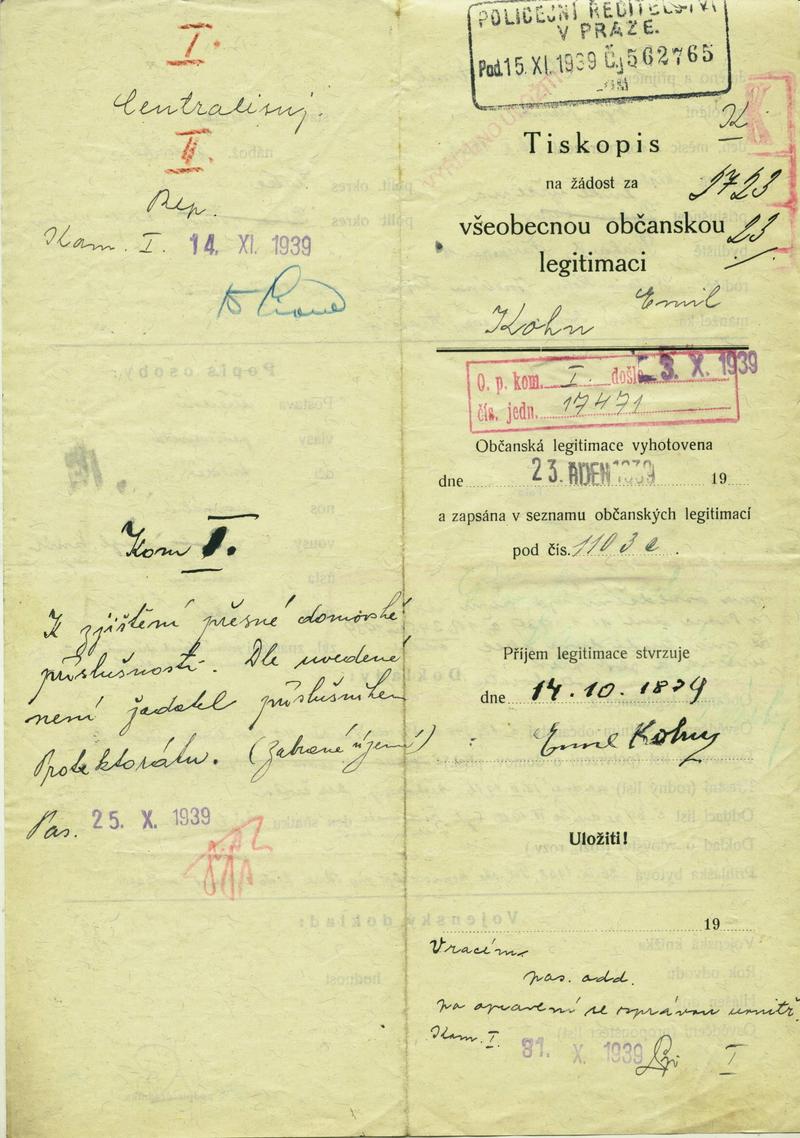 I.
Centralisuj.
II.
Rep.
Kom. I. 14. XI. 1939
Kom I.
K zjištění přesné domovské
příslušnosti. Dle uvedené
není žadatel příslušníkem
Protektorátu. (Zabrané území)
Pas. 25. X. 1939
POLICEJNÍ ŘEDITELSTVÍ
V PRAZE.
Pod. 15. XI. 1939 Čj 562765
K
Tiskopis
na žádost za
1723
všeobecnou občanskou
23
legitimaci
Kohn Emil
O. p. kom. I. došlo 3. X. 1939
čís. jedn. 17471
Občanská legitimace vyhotovena
dne 23. ŘÍJEN 1939 19
a zapsána v seznamu občanských legitimací
pod čís. 1103 c.
Příjem legitimace stvrzuje
dne 14. 10. 1839
Emil Kohn
Uložiti!
19
Vracím
pas. odd.
po opravení se zprávou uvnitř.
Kom. I.
31. X. 1939
I